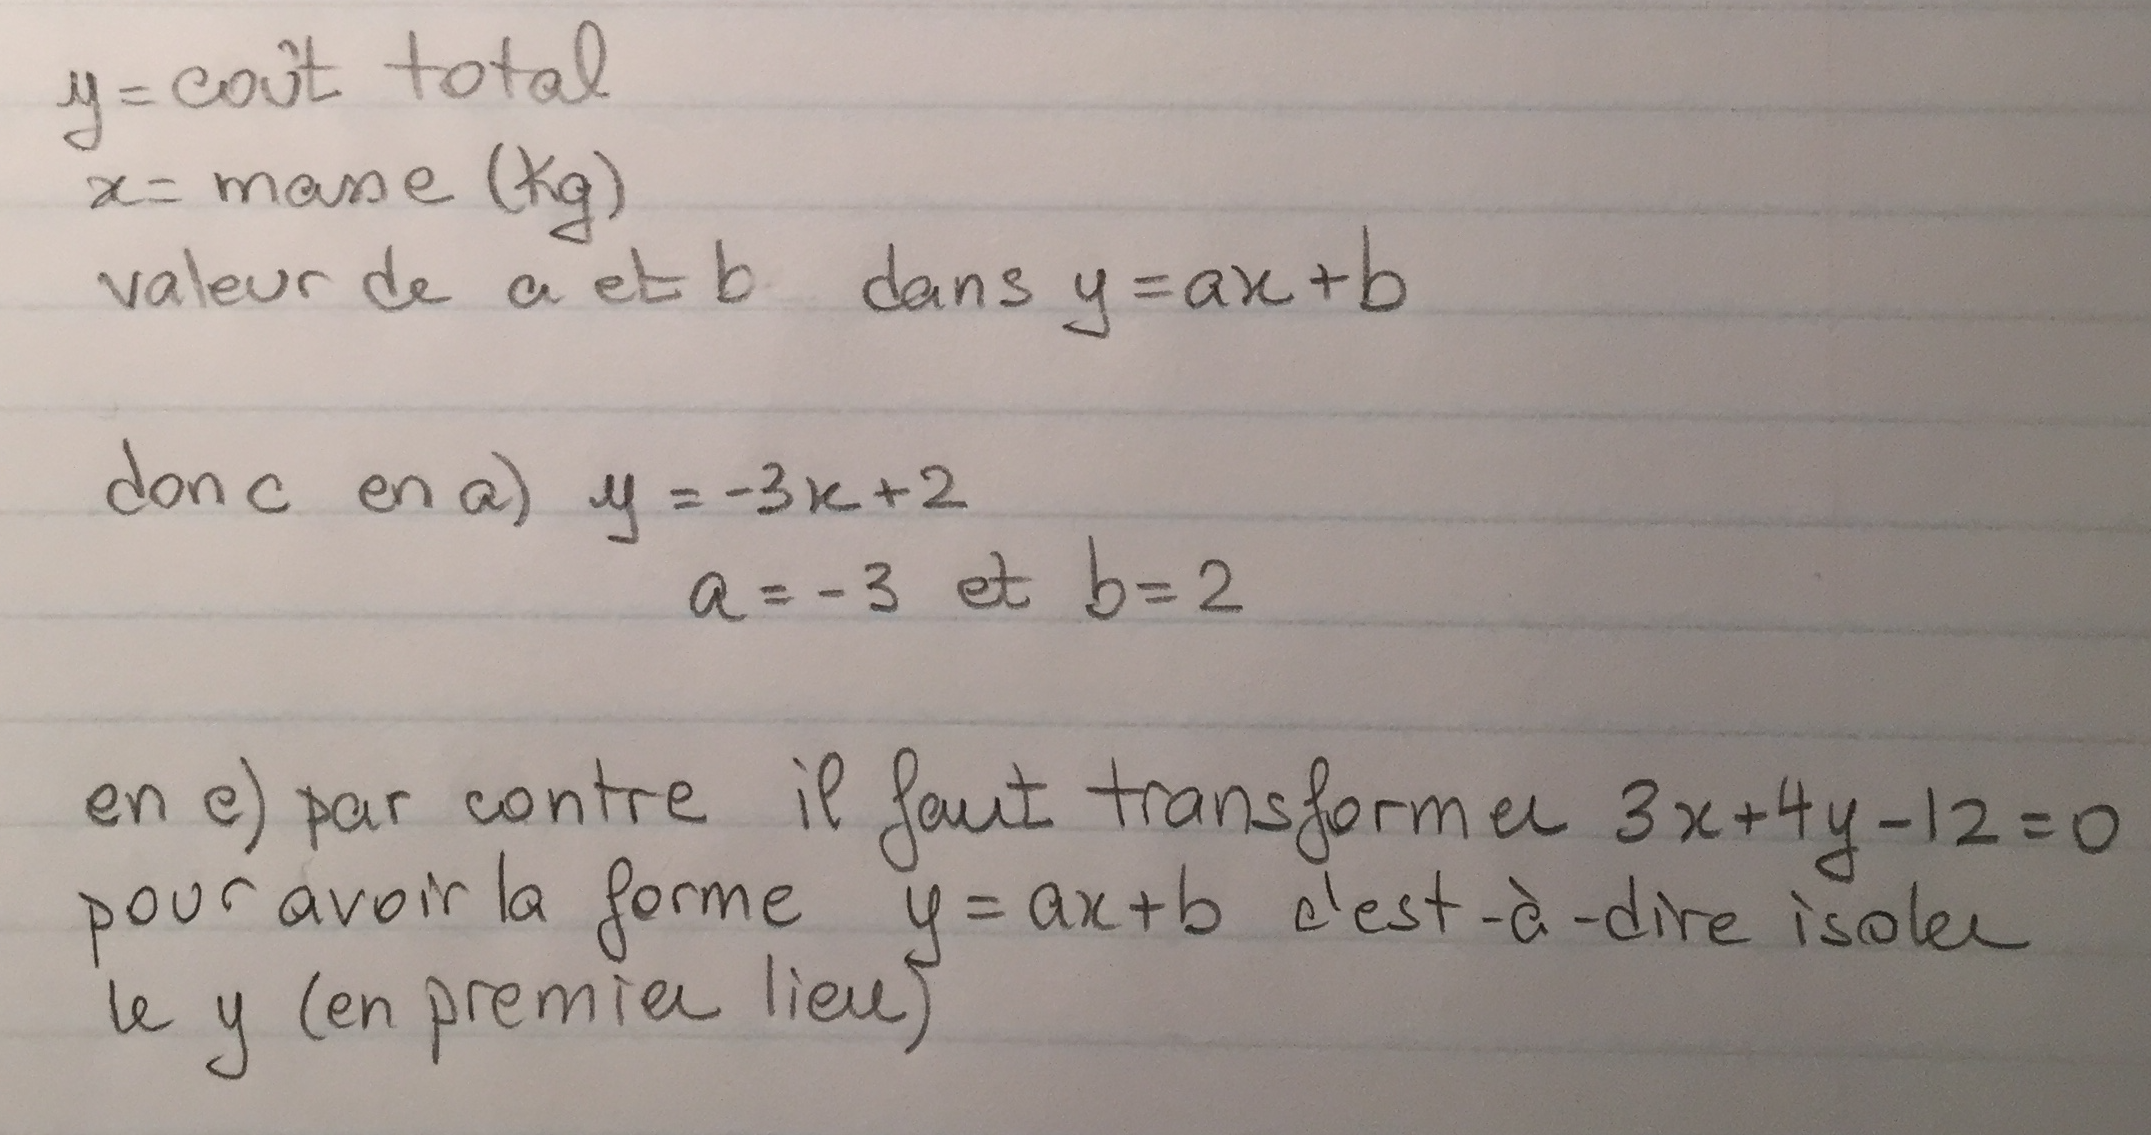 y = coût total
x = masse (kg)
valeur de a et b dans y = ax + b
donc en a) y = -3x + 2
a = -3 et b = 2
en e) par contre il faut transformer 3x + 4y - 12 = 0
pour avoir la forme y = ax + b c'est-à-dire isoler
le y (en premier lieu)